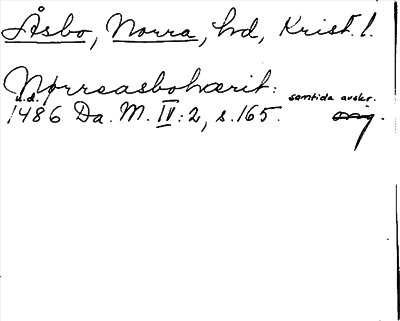 Åsbo, Norra, hd, Krist. l.
Nørreasbohærit:
u.d. samtida avskr.
1486 Da. M. IV: 2, s. 165. orig.